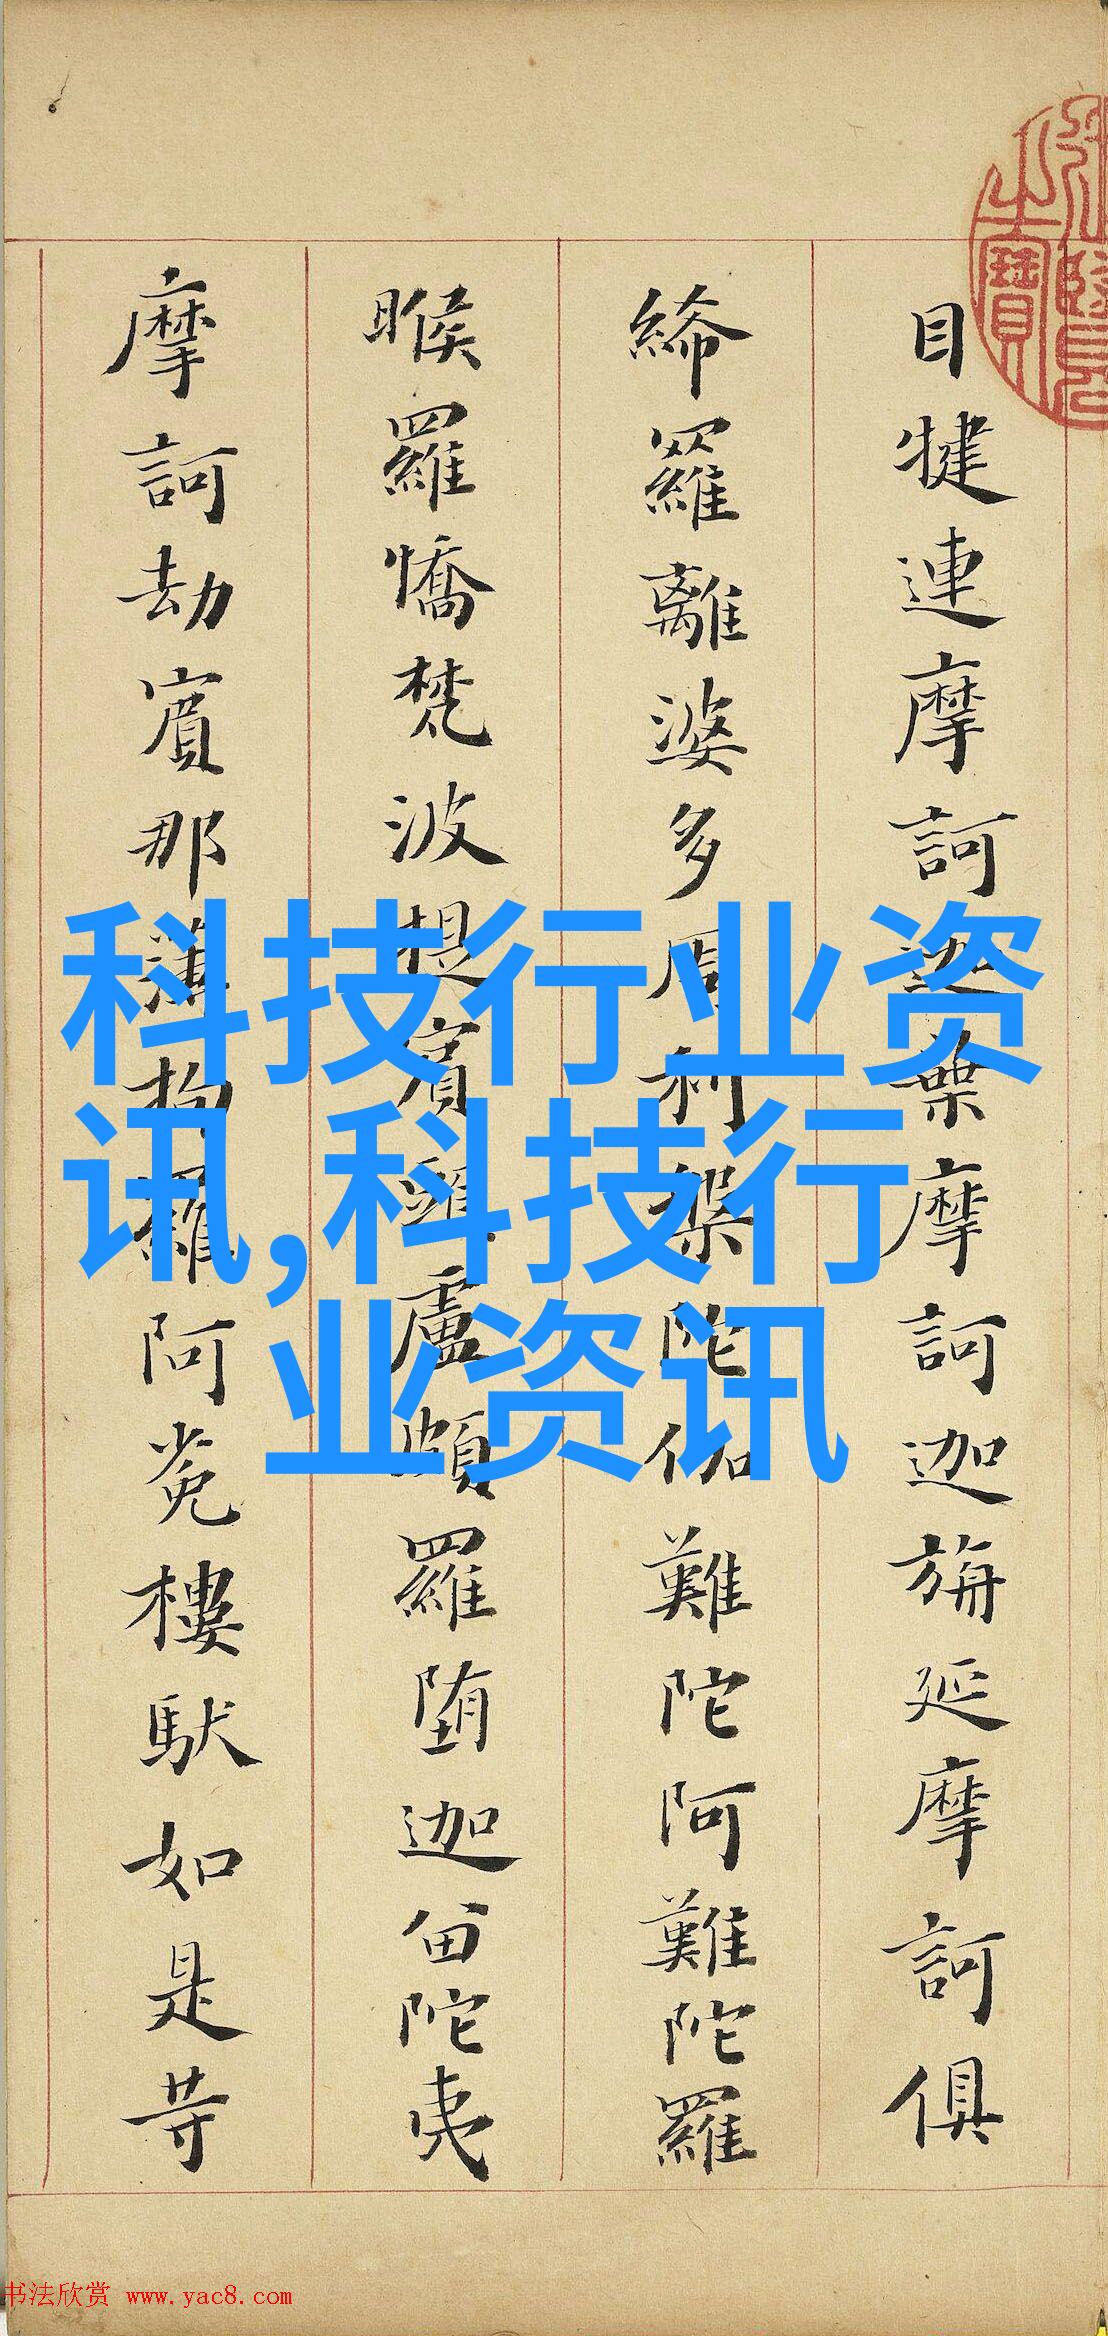 目犍連摩訶迦葉摩訶迦旃延摩訶俱
絺羅離婆多周利槃陀伽難陀阿難陀羅
睺羅憍梵波提賓頭盧頗羅墮迦留陀夷
摩訶劫賓那薄拘羅阿㝹樓馱如是等
科技行业资
讯,科技行
业资讯
书法欣赏 www.yac8.com